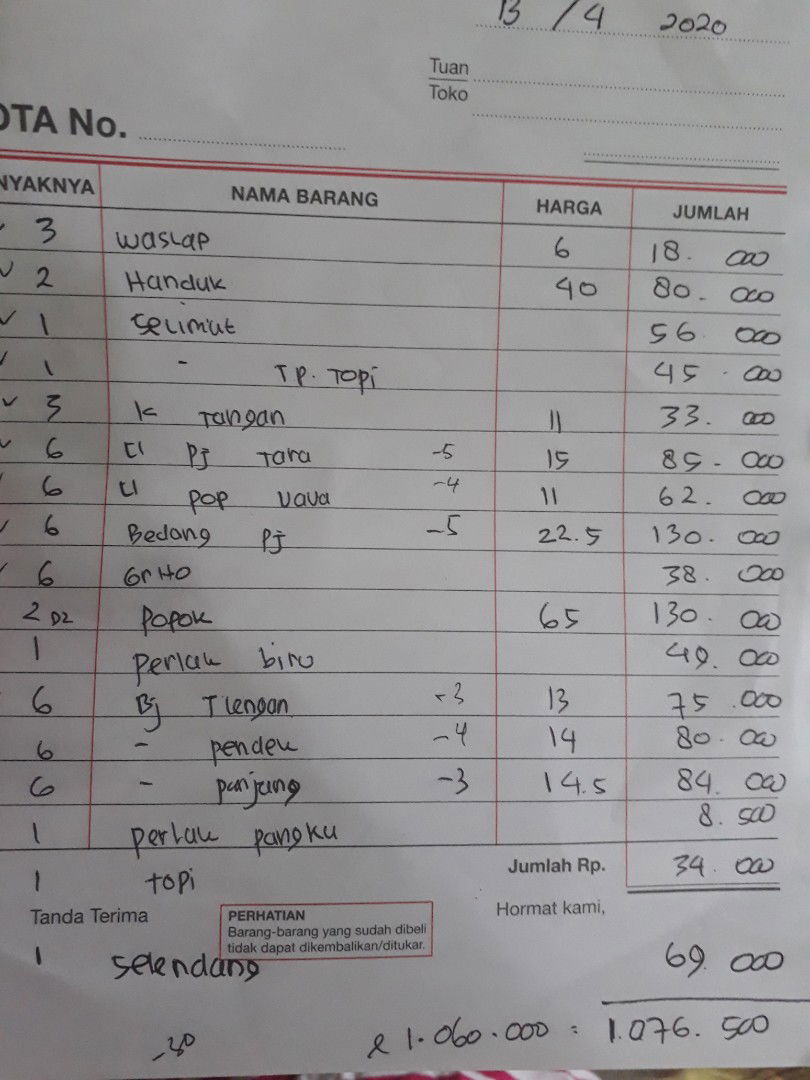 13 / 4 2020
Tuan
Toko
OTA No.
NYAKNYA NAMA BARANG HARGA JUMLAH
3 Waslap 6 18. 000
2 Handuk 40 80. 000
1 Selimut 56 000
1 - TP. Topi 45 . 000
3 K Tangan 11 33. 000
6 Cl Pj Tara -5 15 85 - 000
6 Cl pop vava -4 11 62. 000
6 Bedong Pj -5 22.5 130. 000
6 GrHo 38. 000
2 Dz Popok 65 130. 000
1 perlak biru 49. 000
6 Bj T lengan -3 13 75 .000
6 - pendek -4 14 80. 000
6 - panjang -3 14.5 84. 000
1 perlak pangku 8. 500
1 topi Jumlah Rp. 34. 000
Tanda Terima Hormat kami,
PERHATIAN
Barang-barang yang sudah dibeli
tidak dapat dikembalikan/ditukar.
1 Selendang 69. 000
-30 1.060.000 = 1.076. 500